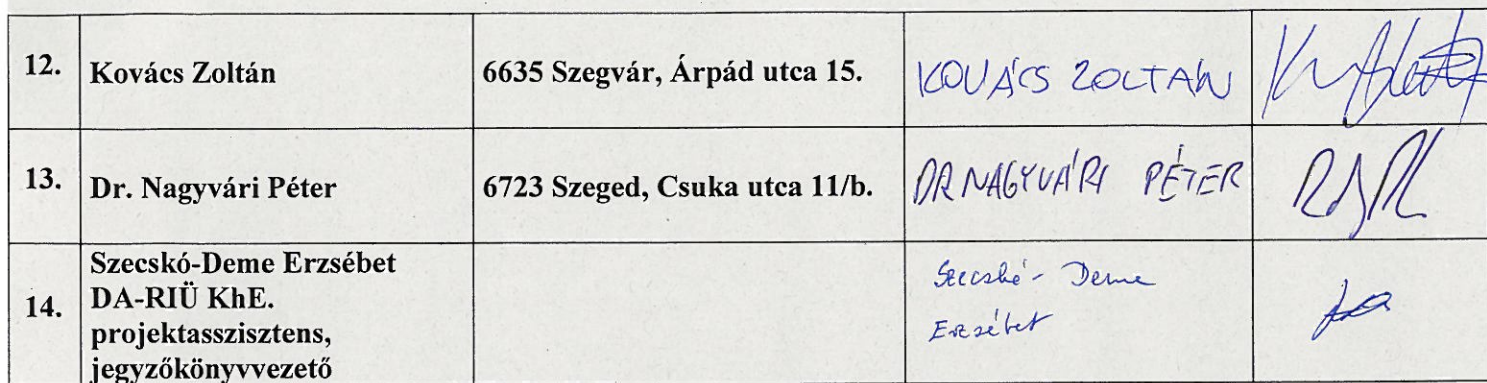 12. Kovács Zoltán 6635 Szegvár, Árpád utca 15. KOVÁCS ZOLTÁN
13. Dr. Nagyvári Péter 6723 Szeged, Csuka utca 11/b. DR NAGYVÁRI PÉTER
14. Szecskó-Deme Erzsébet
DA-RIÜ KhE.
projektasszisztens,
jegyzőkönyvvezető
Szecskó - Deme
Erzsébet